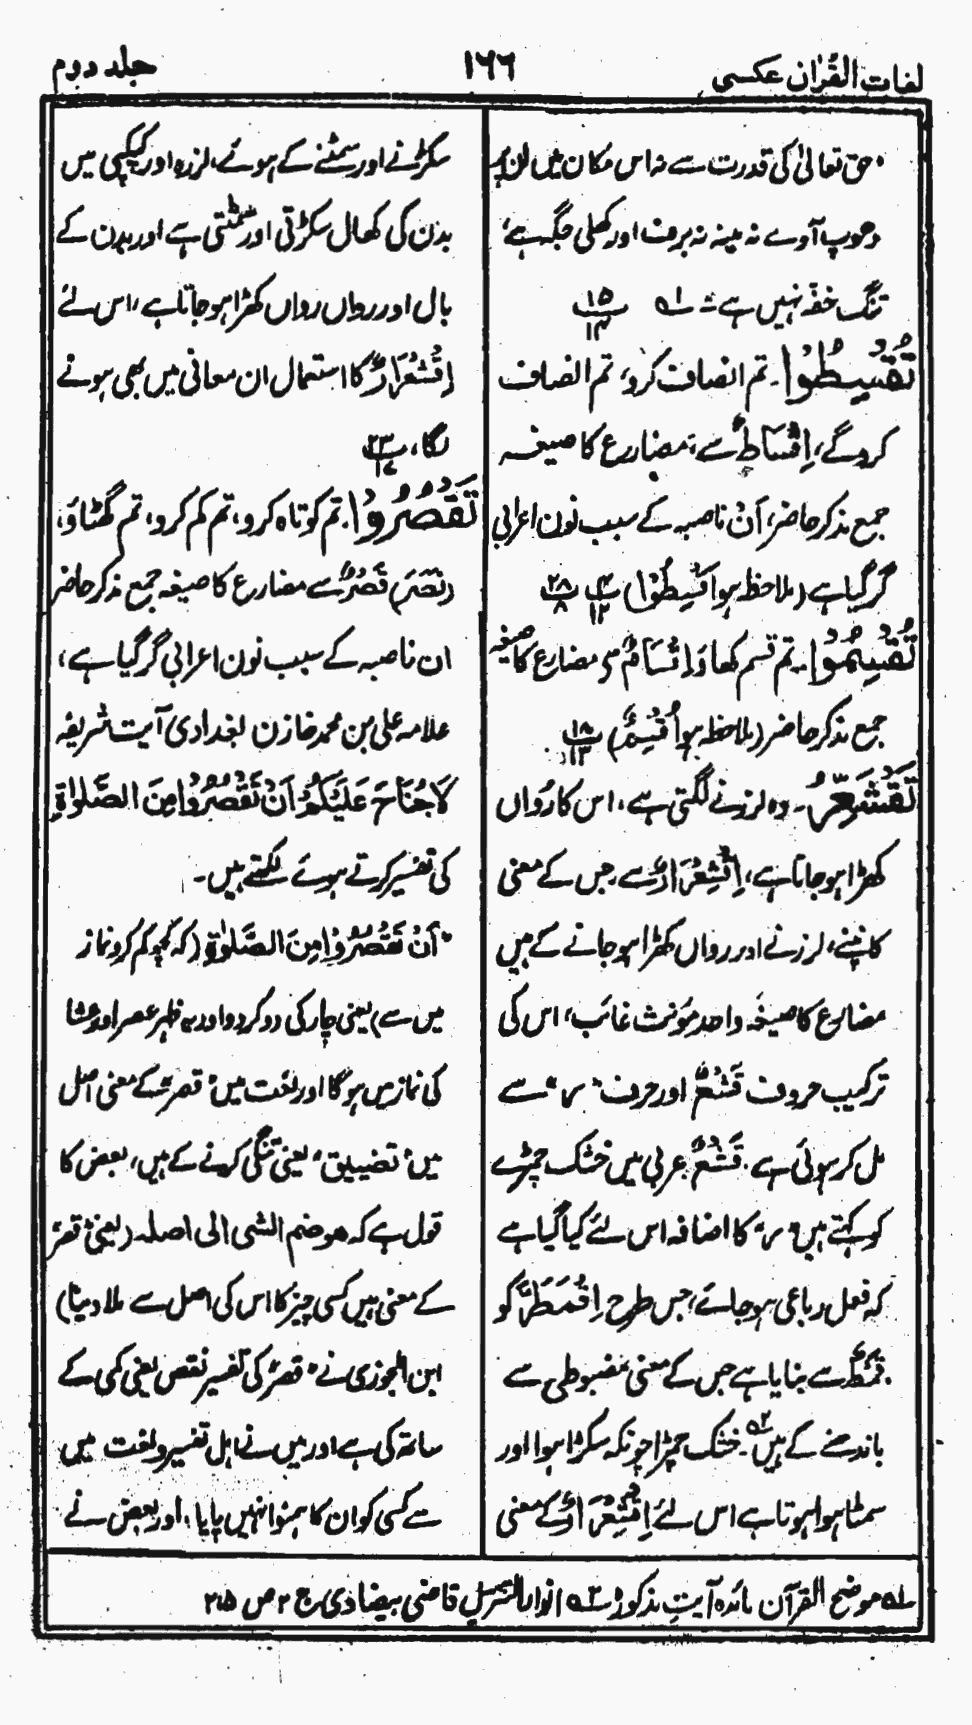 لغات القرآن عکسی
۱۶۶
جلد دوم
"حق تعالیٰ کی قدرت سے نہ اس مکان میں ان پر
دھوپ آوے نہ مینہ نہ برف اور کھلی جگہ ہے
تنگ خفہ نہیں ہے" لہ ۱۵/۱۴
تُقْسِطُوْا۔ تم انصاف کرو، تم انصاف
کروگے، اِقْسَاطٌ سے، مضارع کا صیغہ
جمع مذکر حاضر، اَنْ ناصبہ کے سبب نون اعرابی
گر گیا ہے (ملاحظہ ہو اَقْسِطُوْا) ۴/۱۲ ۲۸/۸
تُقْسِمُوْا۔ تم قسم کھاؤ اِقْسَامٌ سے مضارع کا صیغہ
جمع مذکر حاضر (ملاحظہ ہو اُقْسِمُ) ۱۸/۱۳
تَقْشَعِرُّ۔ وہ لرزنے لگتی ہے، اس کا رُواں
کھڑا ہو جاتا ہے، اِقْشِعْرَارٌ سے، جس کے معنی
کانپنے، لرزنے اور رواں کھڑا ہو جانے کے ہیں
مضارع کا صیغہ واحد مؤنث غائب، اس کی
ترکیب حروف قَشْعٌ اور حرف "ر" سے
مل کر ہوئی ہے۔ قَشْعٌ عربی میں خشک چمڑے
کو کہتے ہیں "ر" کا اضافہ اس لئے کیا گیا ہے
کہ فعل رباعی ہو جائے، جس طرح اِقْمَطَرَّ کو
قَمْطٌ سے بنایا ہے جس کے معنی مضبوطی سے
باندھنے کے ہیں ۲ہ۔ خشک چمڑا چونکہ سکڑا ہوا اور
سمٹا ہوا ہوتا ہے اس لئے اِقْشِعْرَارٌ کے معنی
سکڑنے اور سمٹنے کے ہوئے، لرزہ اور کپکپی میں
بدن کی کھال سکڑتی اور سمٹتی ہے اور بدن کے
بال اور رواں رواں کھڑا ہو جاتا ہے، اس لئے
اِقْشِعْرَارٌ کا استعمال ان معانی میں بھی ہونے
لگا، ۲۳/۱۷
تَقْصُرُوْا۔ تم کوتاہ کرو، تم کم کرو، تم گھٹاؤ،
(نَصَرَ) قَصْرٌ سے مضارع کا صیغہ جمع مذکر حاضر
ان ناصبہ کے سبب نون اعرابی گر گیا ہے،
علامہ علی بن محمد خازن بغدادی آیت شریفہ
لَاجُنَاحَ عَلَيْكُمْ اَنْ تَقْصُرُوْا مِنَ الصَّلٰوةِ
کی تفسیر کرتے ہوئے لکھتے ہیں۔
"اَنْ تَقْصُرُوْا مِنَ الصَّلٰوةِ (کہ کچھ کم کرو نماز
میں سے) یعنی چار کی دو کردو اور یہ ظہر عصر اور عشا
کی نماز میں ہوگا اور لغت میں "قصر" کے معنی اصل
میں "تضییق" یعنی تنگی کرنے کے ہیں، بعض کا
قول ہے کہ ھو ضم الشی الی اصلہ (یعنی "قصر"
کے معنی ہیں کسی چیز کا اس کی اصل سے ملا دینا)
ابن الجوزی نے "قصر" کی تفسیر نقص یعنی کمی کے
ساتھ کی ہے اور میں نے اہل تفسیر و لغت میں
سے کسی کو ان کا ہمنوا نہیں پایا، اور بعض نے
لہ موضح القرآن مائدہ آیت مذکورۂ ۲ہ انوار التنزیل قاضی بیضاوی ج ۲ ص ۲۱۵